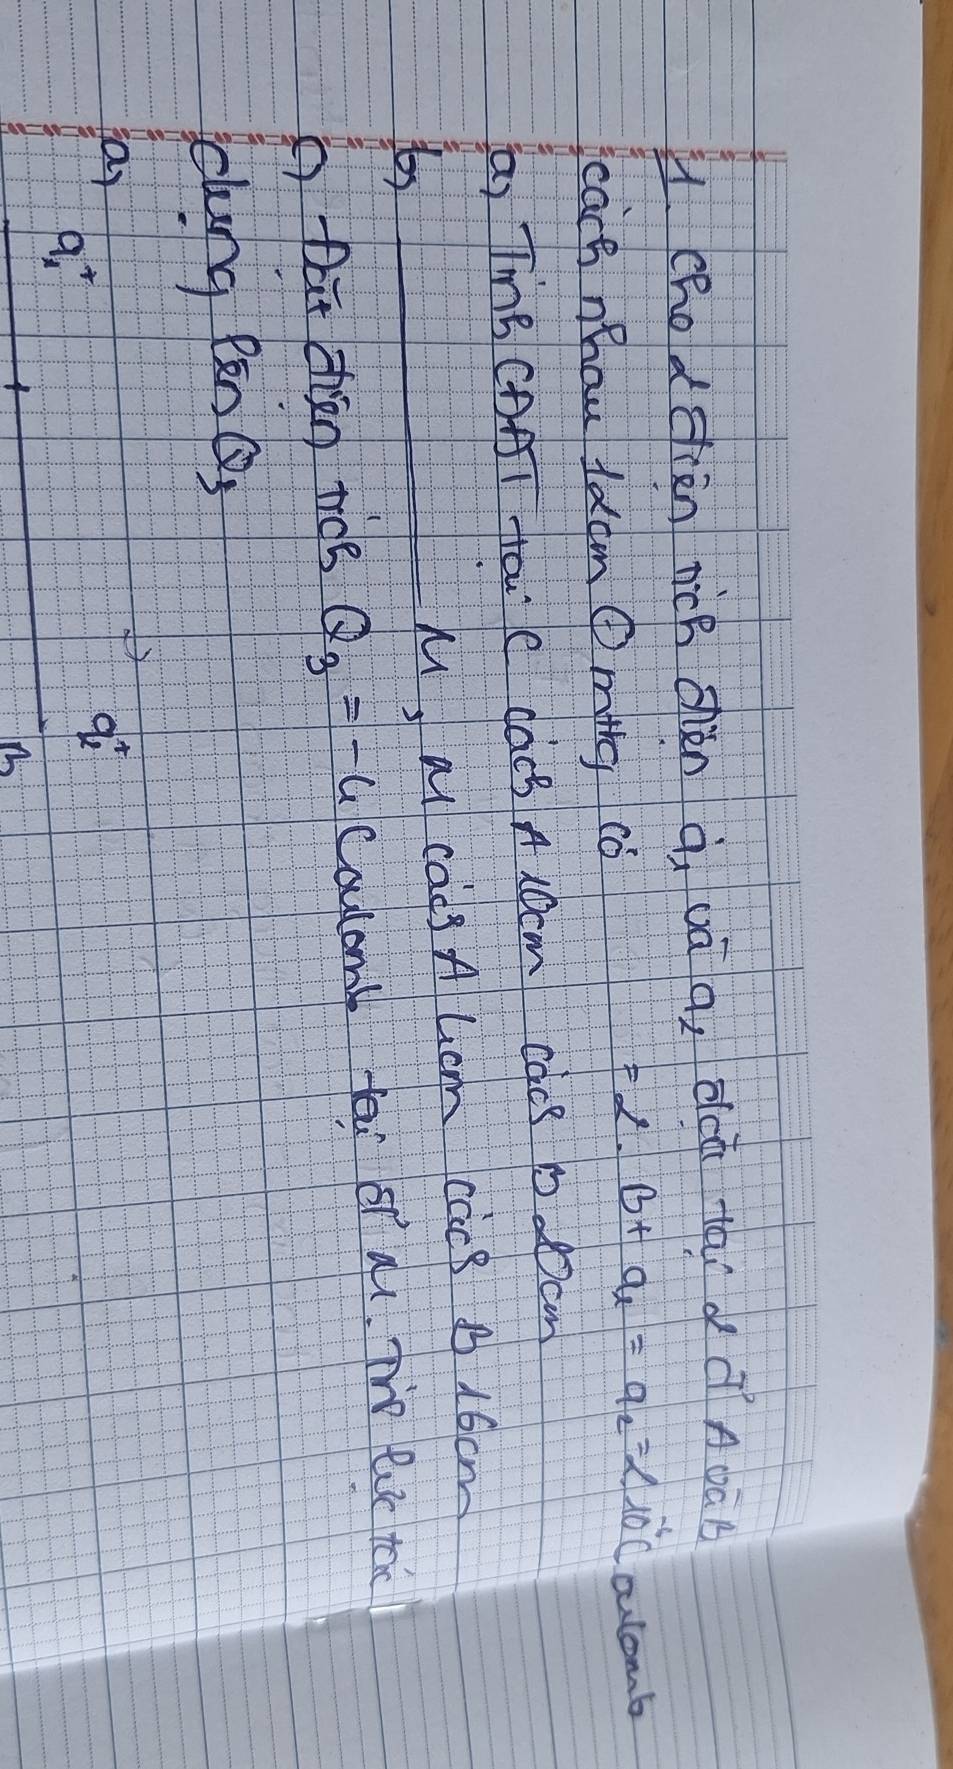 1. Cho 2 điện tích điện q₁ và q₂ đặt tại 2 đ' A và B
cách nhau 12cm có = 2. Bt q₁ = q₂ = 2.10 Coulomb
a, Tính CĐĐT tại C cách A 10cm cách B 20cm
b, ———— M, M cách A 4cm cách B 16cm
c, Đặt điện tích Q₃ = -4 Coulomb tại đ' M. Tính lực tác
dụng lên Q₃
a,
q₁⁺ q₂⁺
B